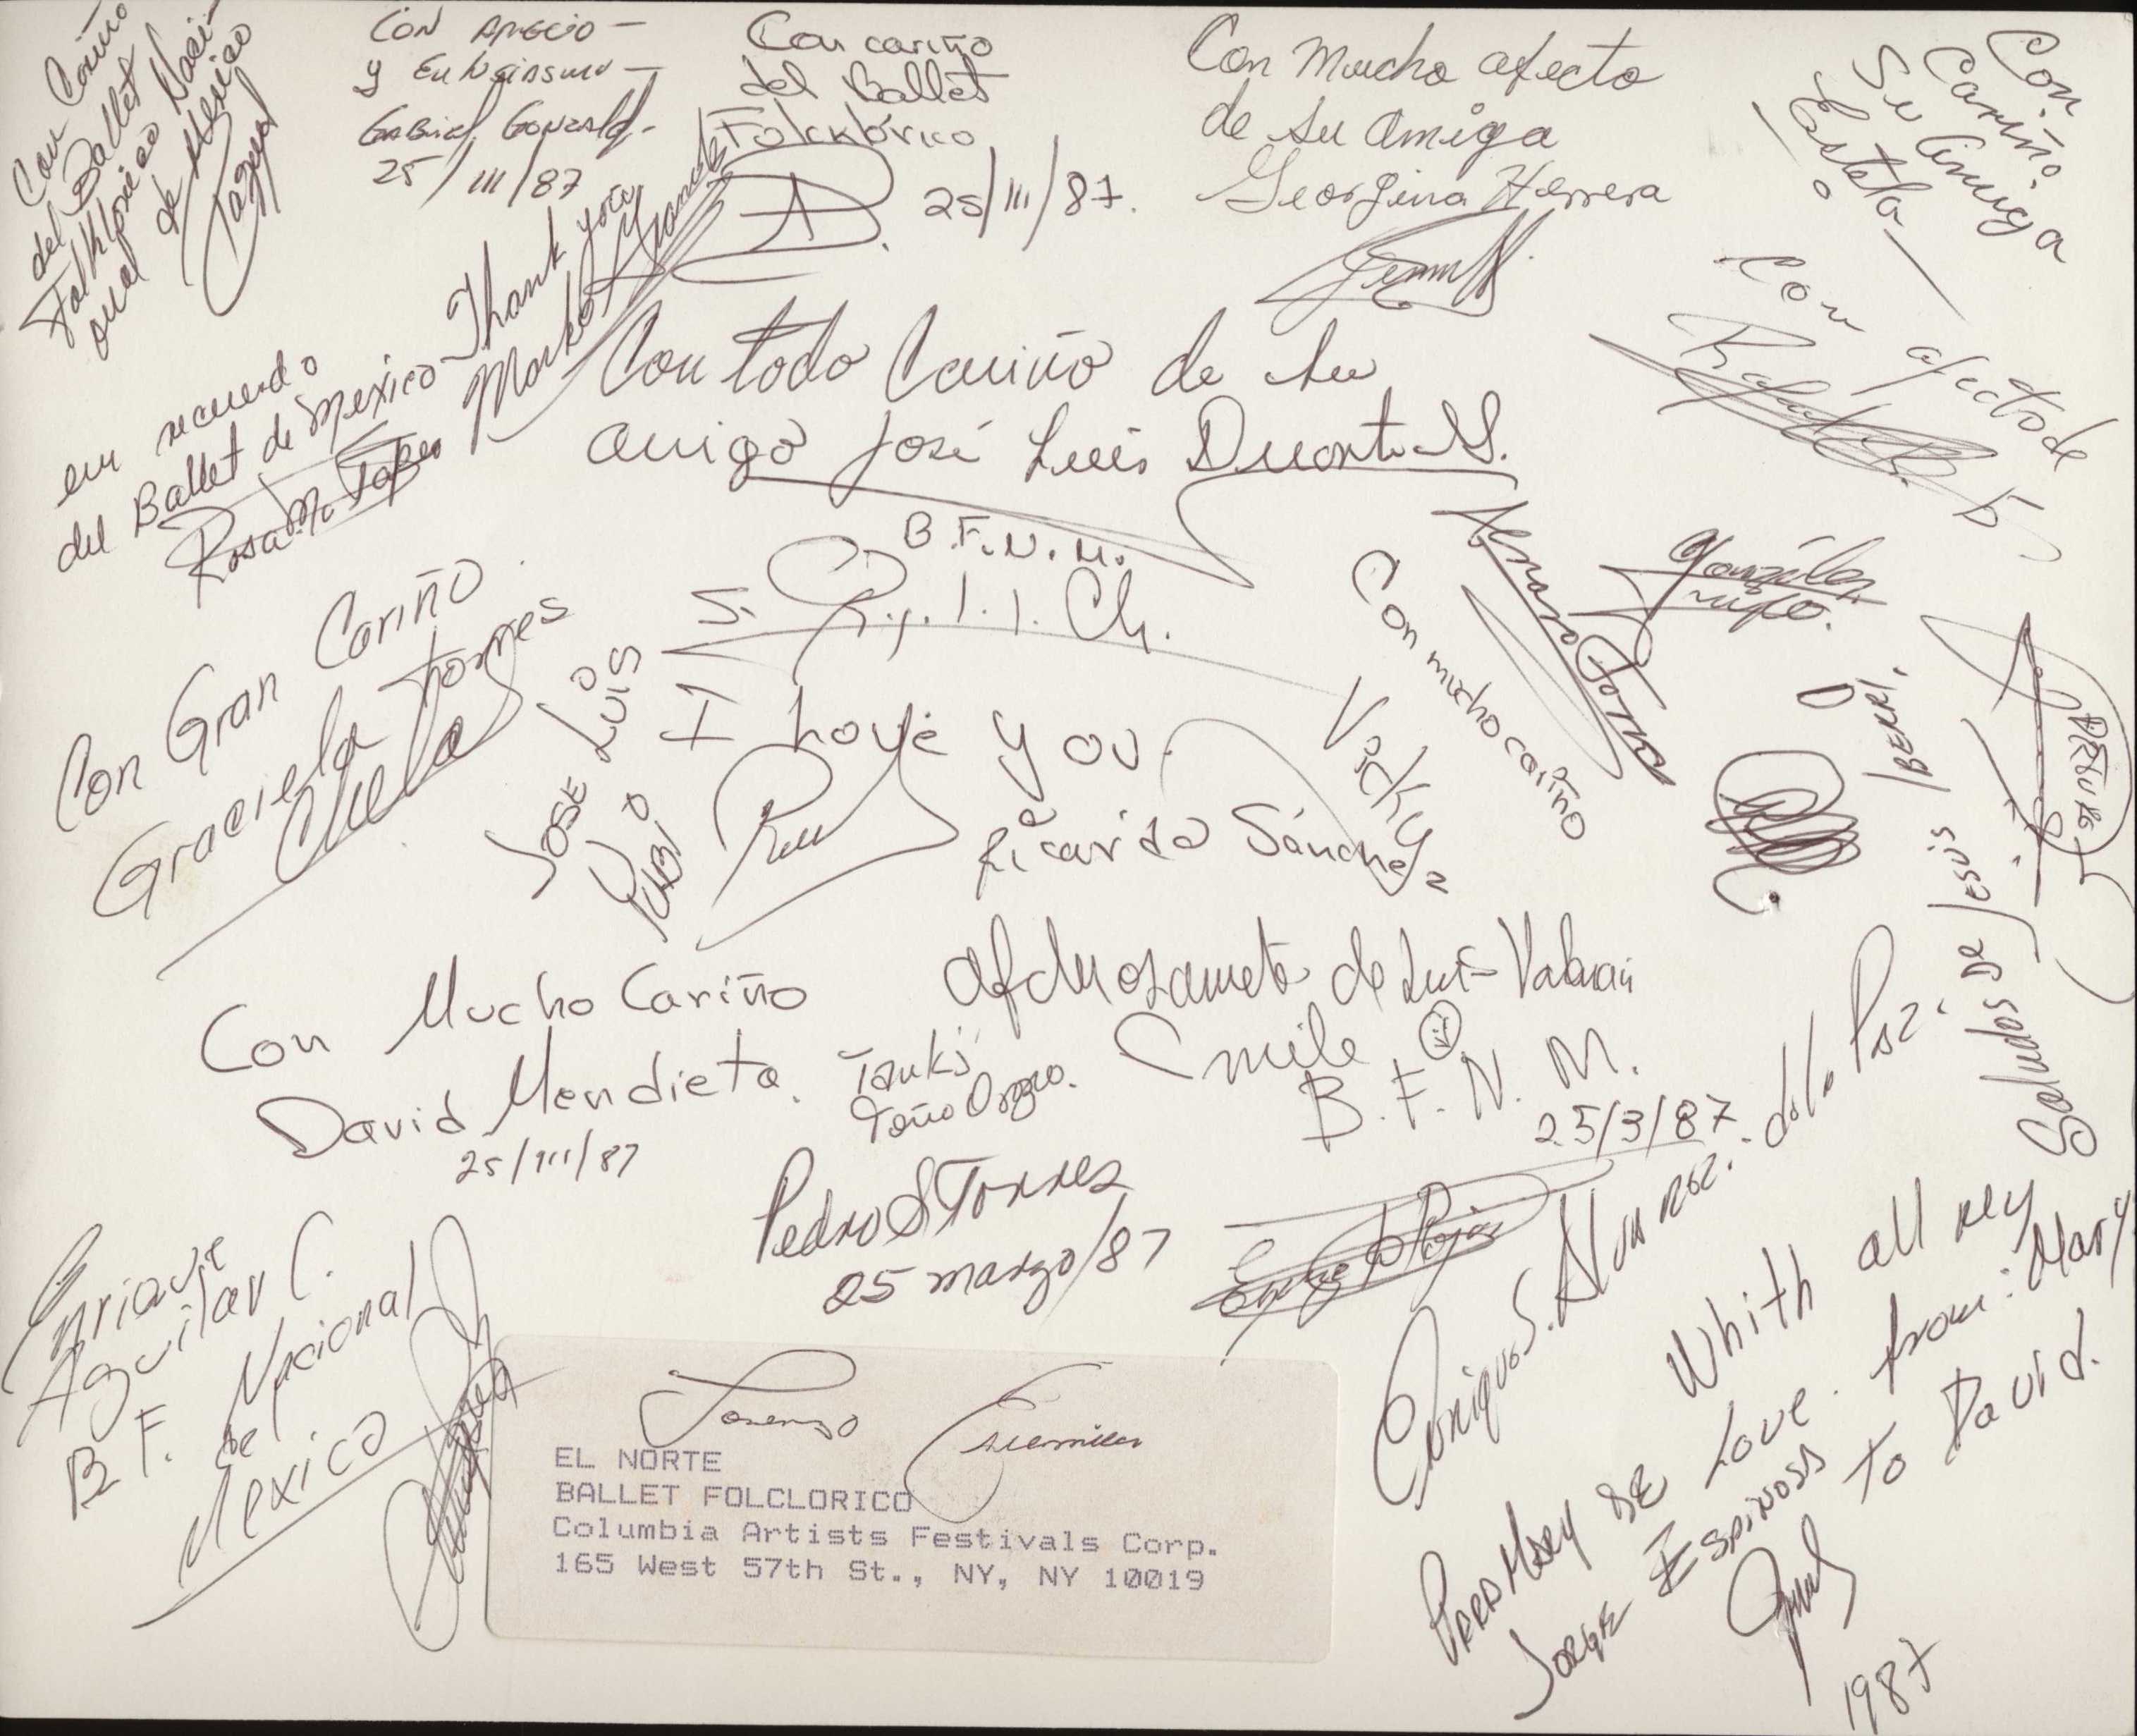 Con Cariño
del Ballet
Folklorico Naci-
onal de Mexico
CON APRECIO —
y Entusiasmo —
GABRIEL GONZALEZ
25/III/87
Con cariño
del Ballet
Folcklórico
25/III/87.
Con Mucho afecto
de su amiga
Georgina Herrera
Con
Cariño
Su Amiga
Estela
Con afecto de
Rafael
en recuerdo
del Ballet de Mexico
Rosa Ma.
Thank you
Con todo Cariño de su
amigo José Luis Duarte M.
B.F.N.M.
González
Con Gran Cariño
Graciela Torres
Chela
JOSE LUIS
RUBIO
I love you
Ricardo Sánchez
Vicky
Con mucho cariño
IBERRI.
Saludos de Jesús
Con Mucho Cariño
David Mendieta.
25/III/87
Tanks
Toño Orozco.
de Luis
Smile
B.F.N.M.
25/3/87
Pedro S Torres
25 marzo/87
Enrique
Aguilar C.
B F. Nacional
de
Mexico
Enrique S.
de la Paz.
Whith all my
Love. from: Mary
to David.
PARA Mary DE
JORGE ESPINOSA
1987
Lorenzo
EL NORTE
BALLET FOLCLORICO
Columbia Artists Festivals Corp.
165 West 57th St., NY, NY 10019